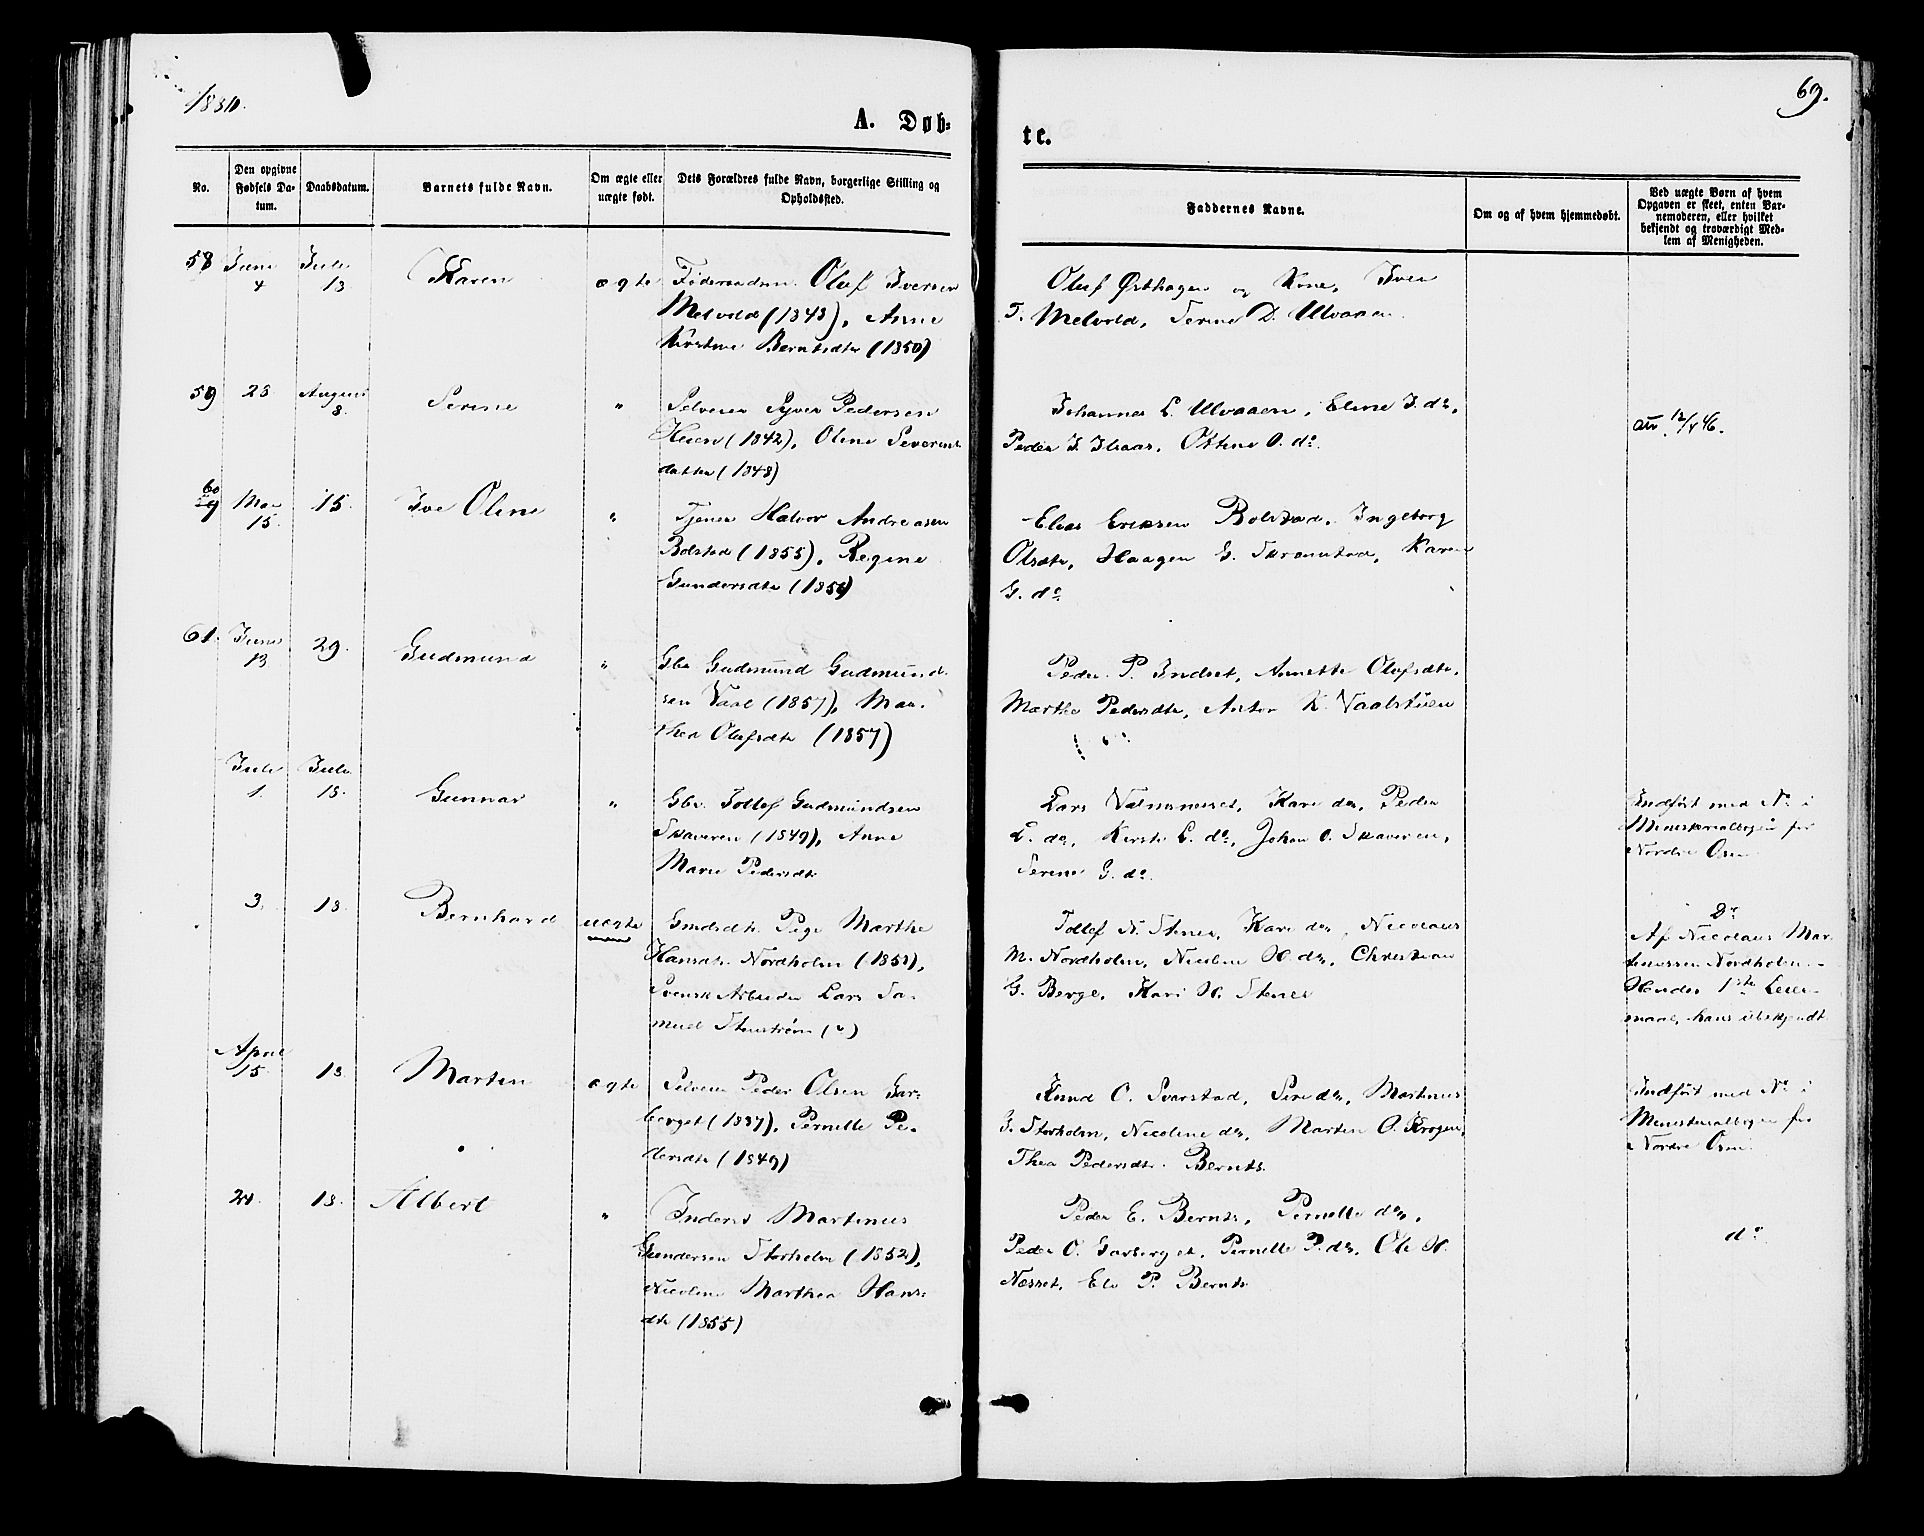 1880.
69.
A. Døb-
te.
No.
Den opgivne Fødsels Da-
tum.
Daabsdatum.
Barnets fulde Navn.
Om ægte eller
uægte født.
Dets Forældres fulde Navn, borgerlige Stilling og
Opholdssted.
Faddernes Navne.
Om og af hvem hjemmedøbt.
Ved uægte Børn af hvem
Opgaven er skeet, enten Bar-
nemoderen, eller hvilket
bekjendt og troværdigt Med-
lem af Menigheden.
58 Juni 4 Juli 13 Karen ægte Føderaadsm. Oluf Iversen
Melvold (1848), Anne
Kirstine Berntsdtr (1850)
Oluf Østhagen og Kone, Iver
T. Melvold, Serine D. Ulvaaen.
59 28 August 8. Serine " Selveier Syver Pedersen
Heien (1842), Oline Severins
datter (1848)
Johannes L. Ulvaaen, Eline J. do,
Peder J. Ilaas, Oline O. do.
60 Mai 15. 15. Olene " Tjener Halvor Andreasen
Bolstad (1855), Regine
Gundersdtr
Elias Eriksen Bolstad, Ingeborg
Olsdtr, Haagen G. Karen
G. do
61. Juni 13 29. Gudmund " Gbr Gudmund Gudmund-
sen Vaal (1857), Mar-
thea Olufsdtr (1857)
Peder P. Indset, Annette Olufsdtr,
Marthe Pedersdtr, Anton K. Vaalstuen
Juli 1. Juli 18. Gunnar " Gbr. Tollef Gudmundsen
Skaveren (1849), Anne
Marie Pedersdtr
Lars Kari do, Peder
L. do, Kirsti L. do, Johan O. Skaveren,
Serine G. do.
Indført med No i
Ministerialbogen for
Nordre Osen
3. 18 Bernhard uægte Gmdsdtr. Pige Marthe
Hansdtr. Nordholm
Svensk Arbeider Lars Sa-
muel Stenstrøm (")
Tollef N. Stener, Kari do, Nicolaus
M. Nordholm, Nicoline H. do, Christian
G. Berge, Kari H. Stener
Do
Af Nicolaus Mar-
tinussen Nordholm.-
Hendes 1ste Leier-
maal, hans ubekjendt.
April 15 18 Martin ægte Selveier Peder Olsen Gar-
berget (1837), Pernelle Pe-
dersdtr (1849)
Knud O. Svarstad, Siri do, Martinus
G. Storholm, Nicoline do, Martin O. Krogen,
Thea Pedersdtr. Bernts.
Indført med No i
Ministerialbogen for
Nordre Osen.
18. Albert " Inderst Martinus
Gundersen Storholm (1852),
Nicoline Marthea Hans-
dtr (1855)
Peder E. Bernts, Pernelle do,
Peder O. Garberget, Pernelle P. do, Ole H.
Næsset, Eli P. Bernts
do